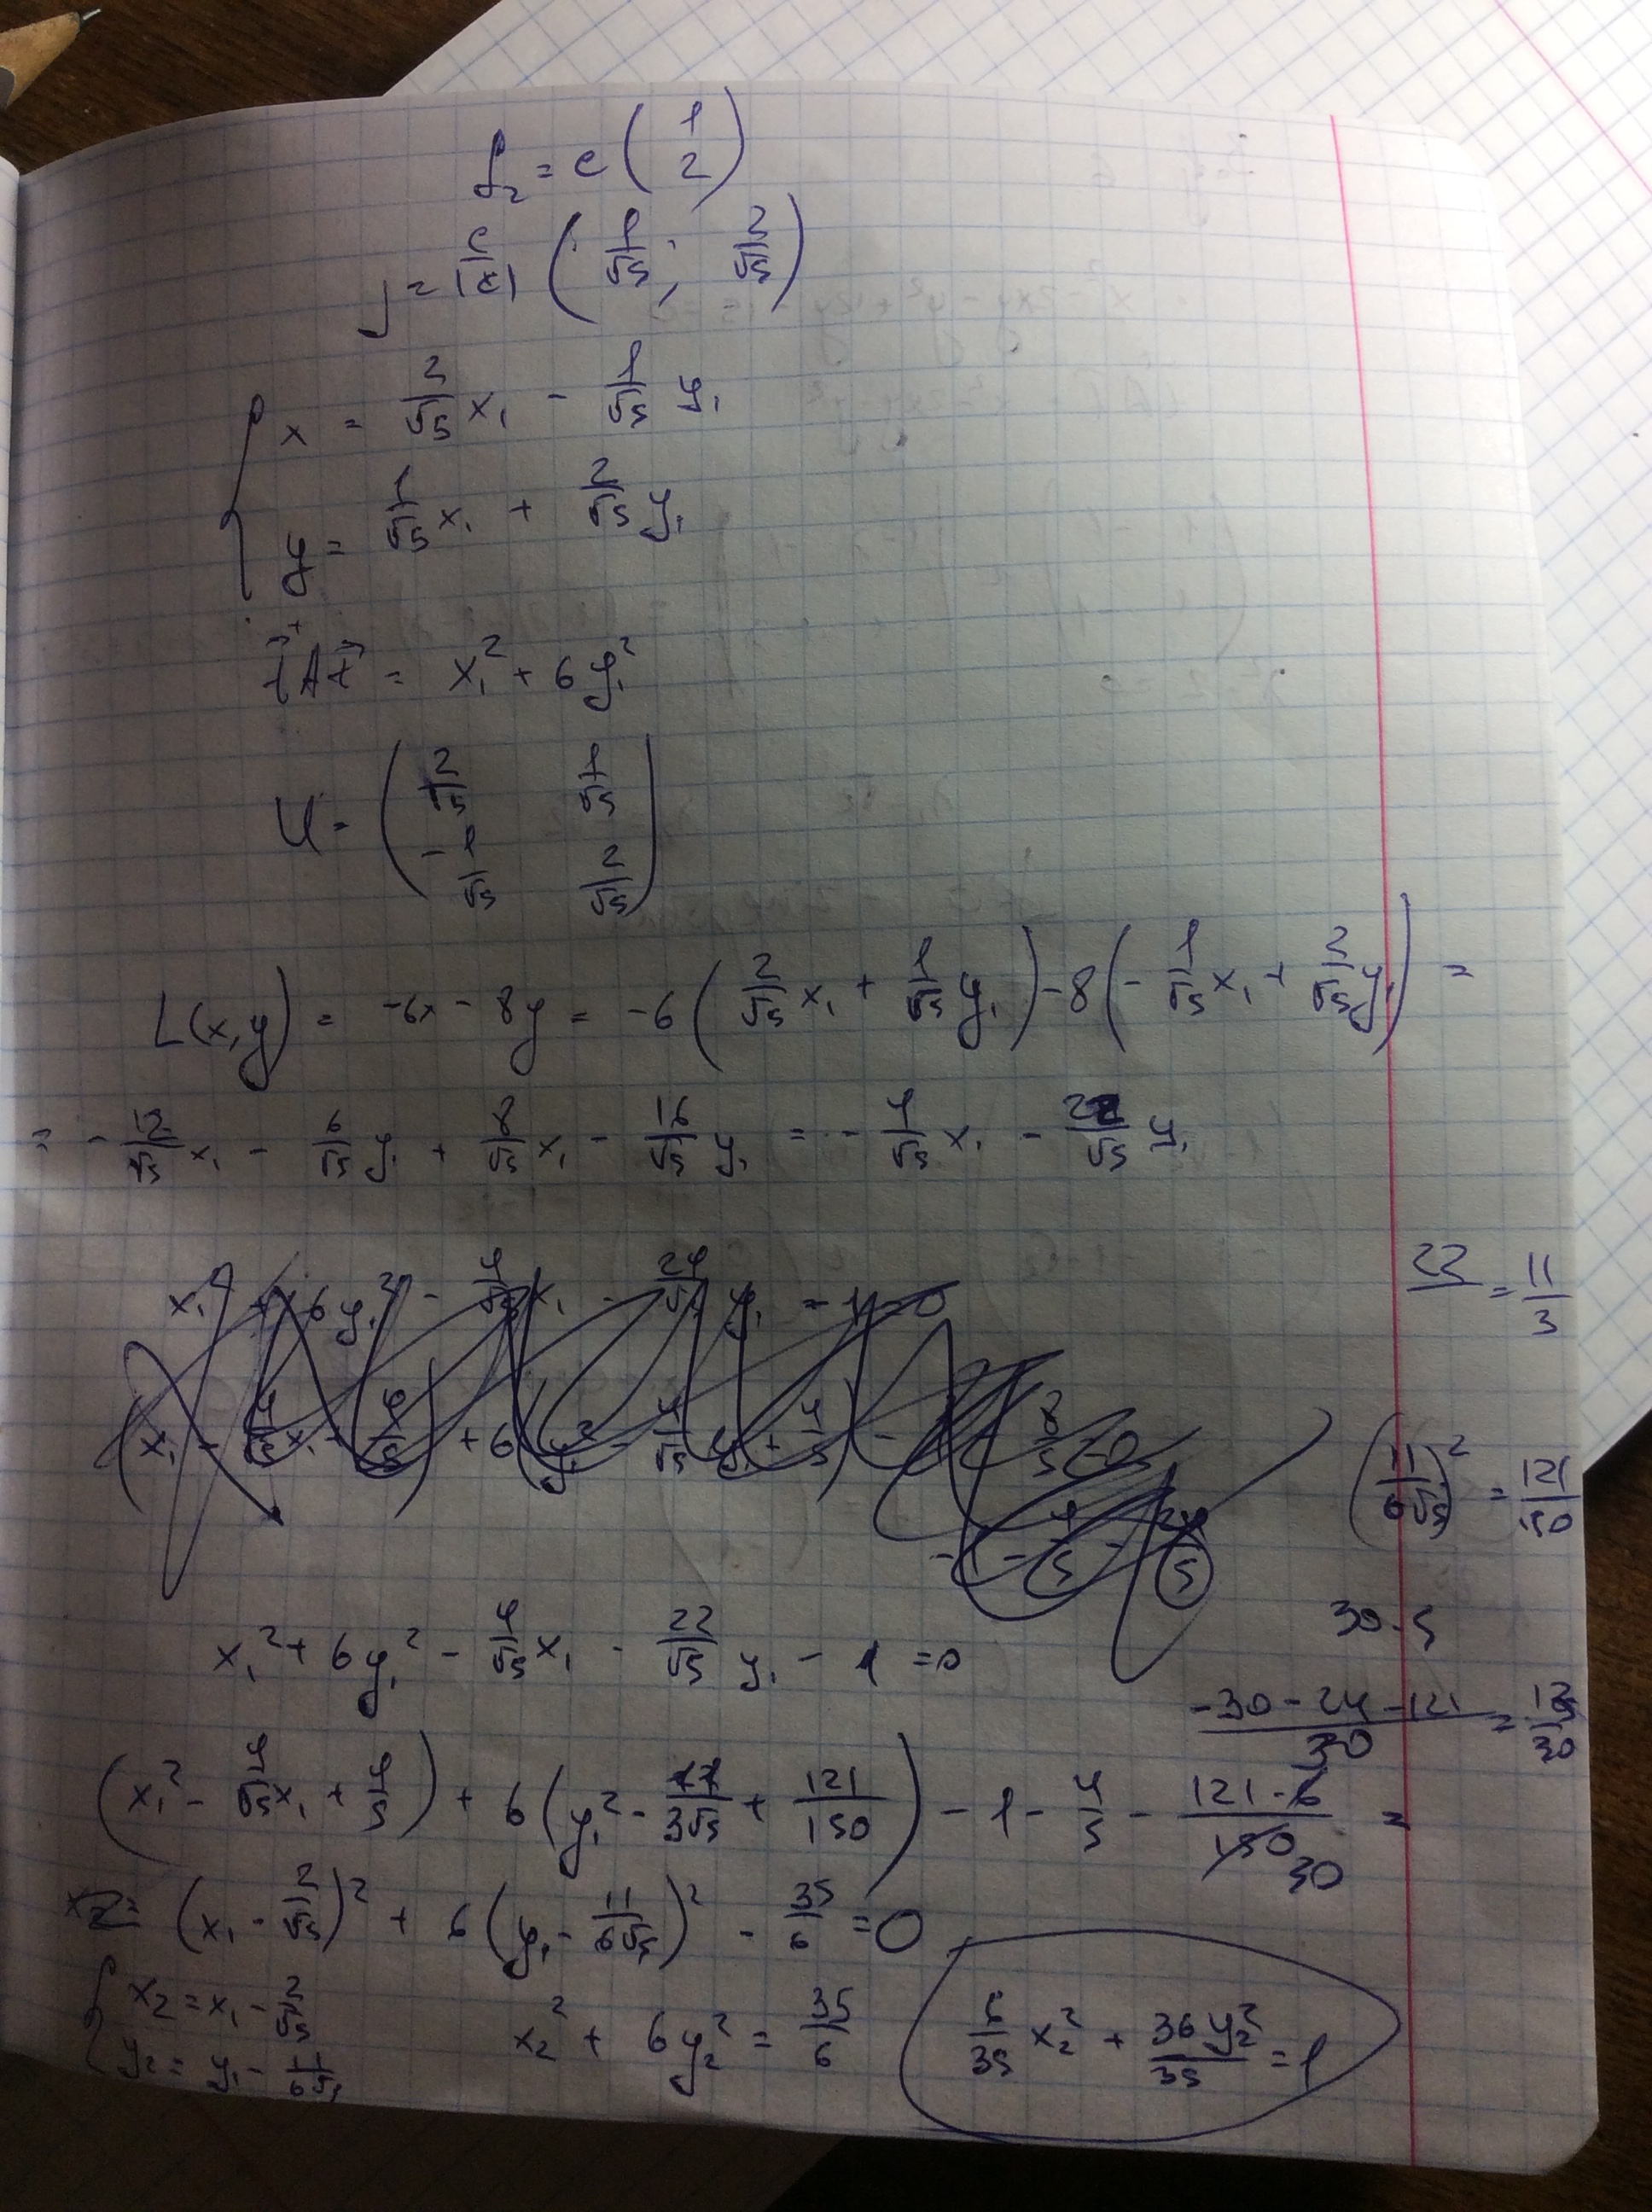 f₂ = c (1 2)
j = c/|c| (1/√5; 2/√5)
{ x = 2/√5 x₁ - 1/√5 y₁
y = 1/√5 x₁ + 2/√5 y₁
t⁺At = x₁² + 6y₁²
U = ( 2/√5 1/√5
-1/√5 2/√5 )
L(x,y) = -6x - 8y = -6(2/√5 x₁ + 1/√5 y₁) - 8(-1/√5 x₁ + 2/√5 y₁) =
= -12/√5 x₁ - 6/√5 y₁ + 8/√5 x₁ - 16/√5 y₁ = -4/√5 x₁ - 22/√5 y₁
22/ = 11/3
(11/6√5)² = 121/150
30·5
x₁² + 6y₁² - 4/√5 x₁ - 22/√5 y₁ - 1 = 0
-30-24-121/30 =
(x₁² - 4/√5 x₁ + 4/5) + 6(y₁² - 11/3√5 + 121/150) - 1 - 4/5 - 121·6/150 30 =
(x₁ - 2/√5)² + 6(y₁ - 11/6√5)² - 35/6 = 0
{ x₂ = x₁ - 2/√5
y₂ = y₁ - 11/6√5
x₂² + 6y₂² = 35/6
6/35 x₂² + 36y₂²/35 = 1